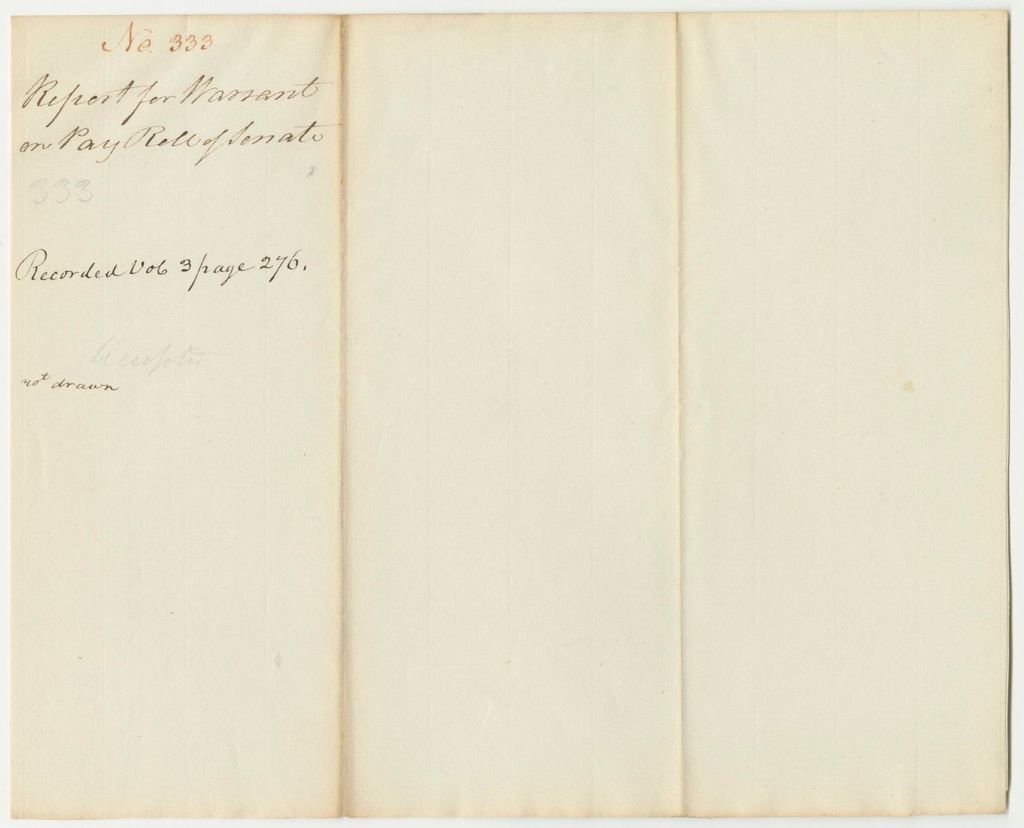 No. 333
Report for Warrant
on Pay Roll of Senate
333
Recorded Vol 3 page 276.
Accepted
not drawn